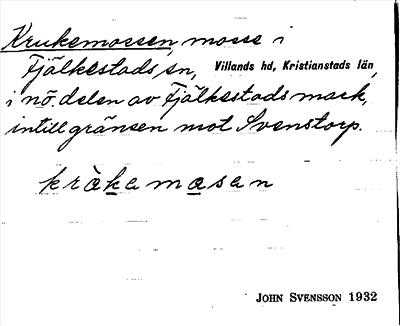 Krukemossen, mosse i
Fjälkestads sn, Villands hd, Kristianstads län,
i nö. delen av Fjälkestads mark,
intill gränsen mot Svenstorp.
kràkamosan
JOHN SVENSSON 1932